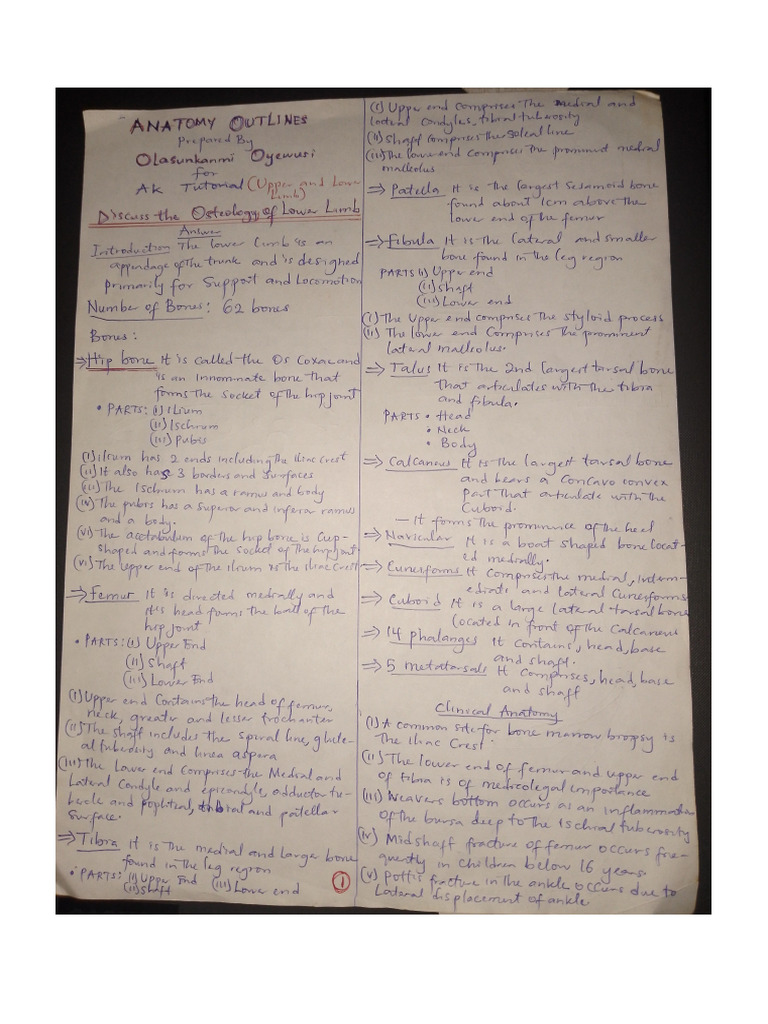 ANATOMY OUTLINES
Prepared By
Olasunkanmi Oyewusi
for
AK Tutorial (Upper and Lower
Limb)
Discuss the Osteology of Lower Limb
Answer
Introduction The lower limb is an
appendage of the trunk and is designed
primarily for Support and Locomotion
Number of Bones: 62 bones
Bones:
⇒ Hip bone It is called the Os Coxae and
is an innominate bone that
forms the socket of the hip joint
• PARTS: (i) Ilium
(ii) Ischium
(iii) Pubis
(i) Ilium has 2 ends including the Iliac Crest
(ii) It also has 3 borders and surfaces
(iii) The Ischium has a ramus and body
(iv) The pubis has a superior and inferior ramus
and a body.
(vi) The acetabulum of the hip bone is Cup-
shaped and forms the socket of the hip joint
(vi) The upper end of the Ilium is the Iliac Crest
⇒ Femur It is directed medially and
its head forms the ball of the
hip joint
• PARTS: (i) Upper End
(ii) Shaft
(iii) Lower End
(i) Upper end Contains the head of femur,
neck, greater and lesser trochanter
(ii) The shaft includes the spiral line, glute-
al tuberosity and linea aspera
(iii) The Lower end Comprises the Medial and
Lateral Condyle and epicondyle, adductor tu-
bercle and popliteal, tibial and patellar
surface.
⇒ Tibia It is the medial and larger bone
found in the leg region
• PARTS: (i) Upper End (iii) Lower end
(ii) Shaft
1
(i) Upper end comprises the medial and
lateral condyles, tibial tuberosity
(ii) Shaft comprises the soleal line
(iii) The lower end comprises the prominent medial
malleolus
⇒ Patella It is the largest sesamoid bone
found about 1cm above the
lower end of the femur
⇒ Fibula It is the lateral and smaller
bone found in the leg region
PARTS (i) Upper end
(ii) Shaft
(iii) Lower end
(i) The Upper end comprises the styloid process
(ii) The lower end Comprises the prominent
lateral malleolus.
⇒ Talus It is the 2nd largest tarsal bone
that articulates with the tibia
and fibula.
PARTS • Head
• Neck
• Body
⇒ Calcaneus It is the largest tarsal bone
and bears a concavo convex
part that articulate with the
Cuboid.
— It forms the prominence of the heel
⇒ Navicular It is a boat shaped bone locat-
ed medially.
⇒ Cuneiforms It Comprises the medial, interm-
ediate and lateral Cuneiforms
⇒ Cuboid It is a large lateral tarsal bone
located in front of the Calcaneus
⇒ 14 phalanges It contains, head, base
and shaft.
⇒ 5 metatarsals It Comprises, head, base
and shaft
Clinical Anatomy
(i) A common site for bone marrow biopsy is
the Iliac Crest.
(ii) The lower end of femur and upper end
of tibia is of medicolegal importance
(iii) Weavers bottom occurs as an inflammation
of the bursa deep to the Ischial tuberosity
(iv) Midshaft fracture of femur occurs fre-
quently in children below 16 years.
(v) Pott's fracture in the ankle occurs due to
Lateral displacement of ankle